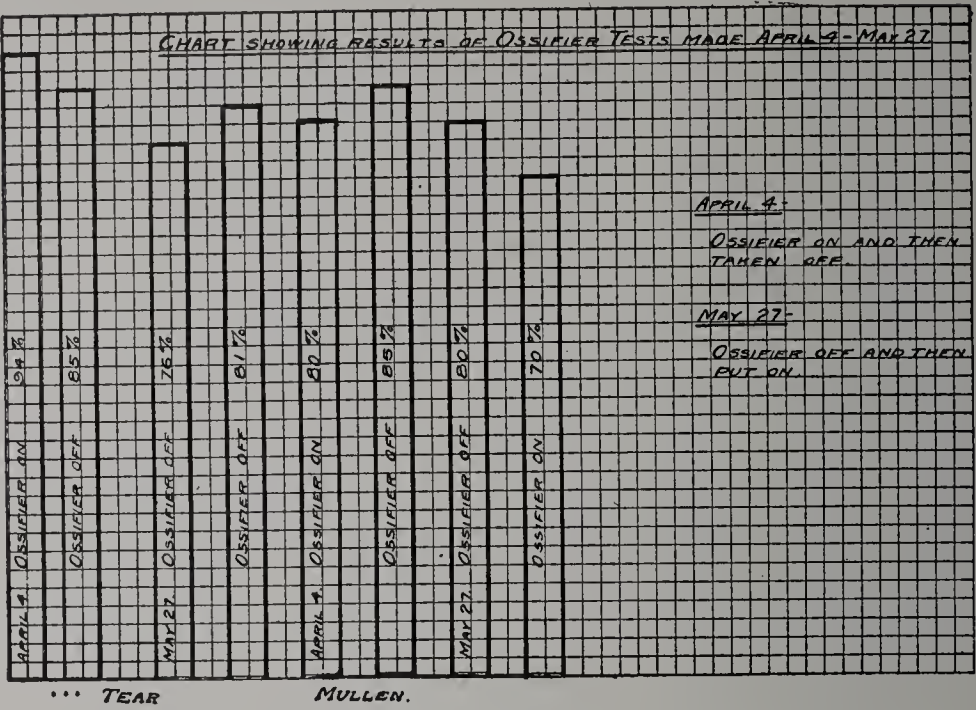 CHART SHOWING RESULTS OF OSSIFIER TESTS MADE APRIL 4 - MAY 27
APRIL 4. OSSIFIER ON 94%
OSSIFIER OFF 85%
MAY 27. OSSIFIER OFF 76%
OSSIFIER OFF 81%
APRIL 4. OSSIFIER ON 80%
OSSIFIER OFF 85%
MAY 27. OSSIFIER OFF 80%
OSSIFIER ON 70%
APRIL 4-
OSSIFIER ON AND THEN
TAKEN OFF.
MAY 27-
OSSIFIER OFF AND THEN
PUT ON.
... TEAR
MULLEN.